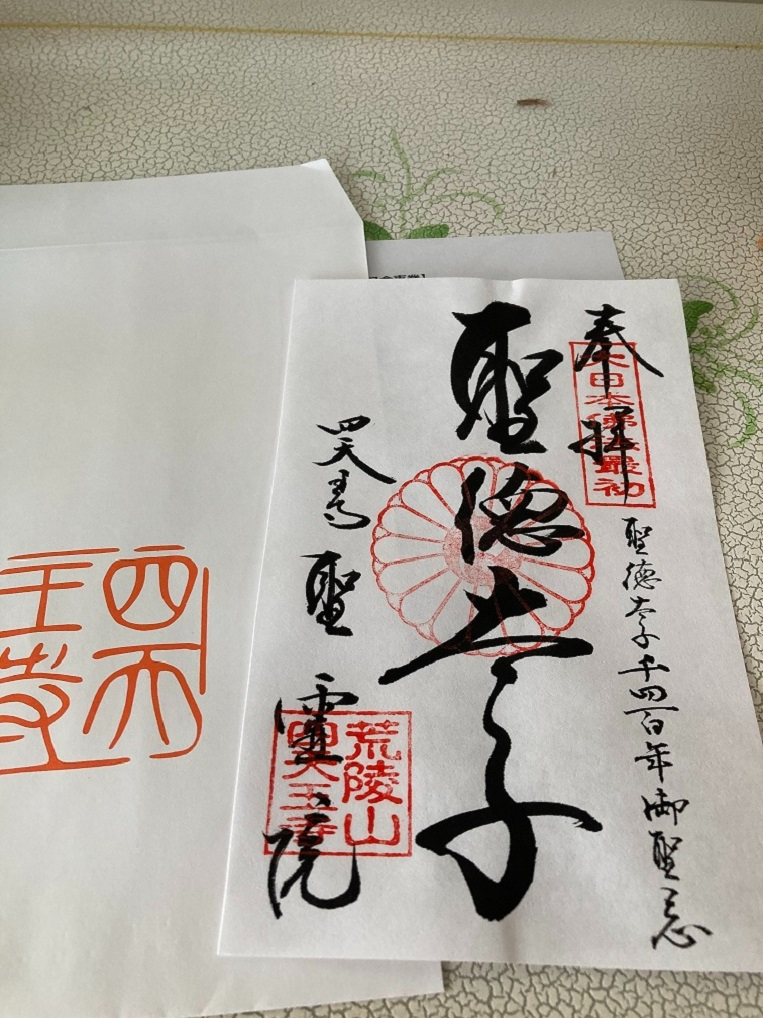 奉拝
大日本佛法最初
聖徳太子千四百年御聖忌
聖徳太子
四天王寺
聖霊院
荒陵山
四天王寺
四天
王寺